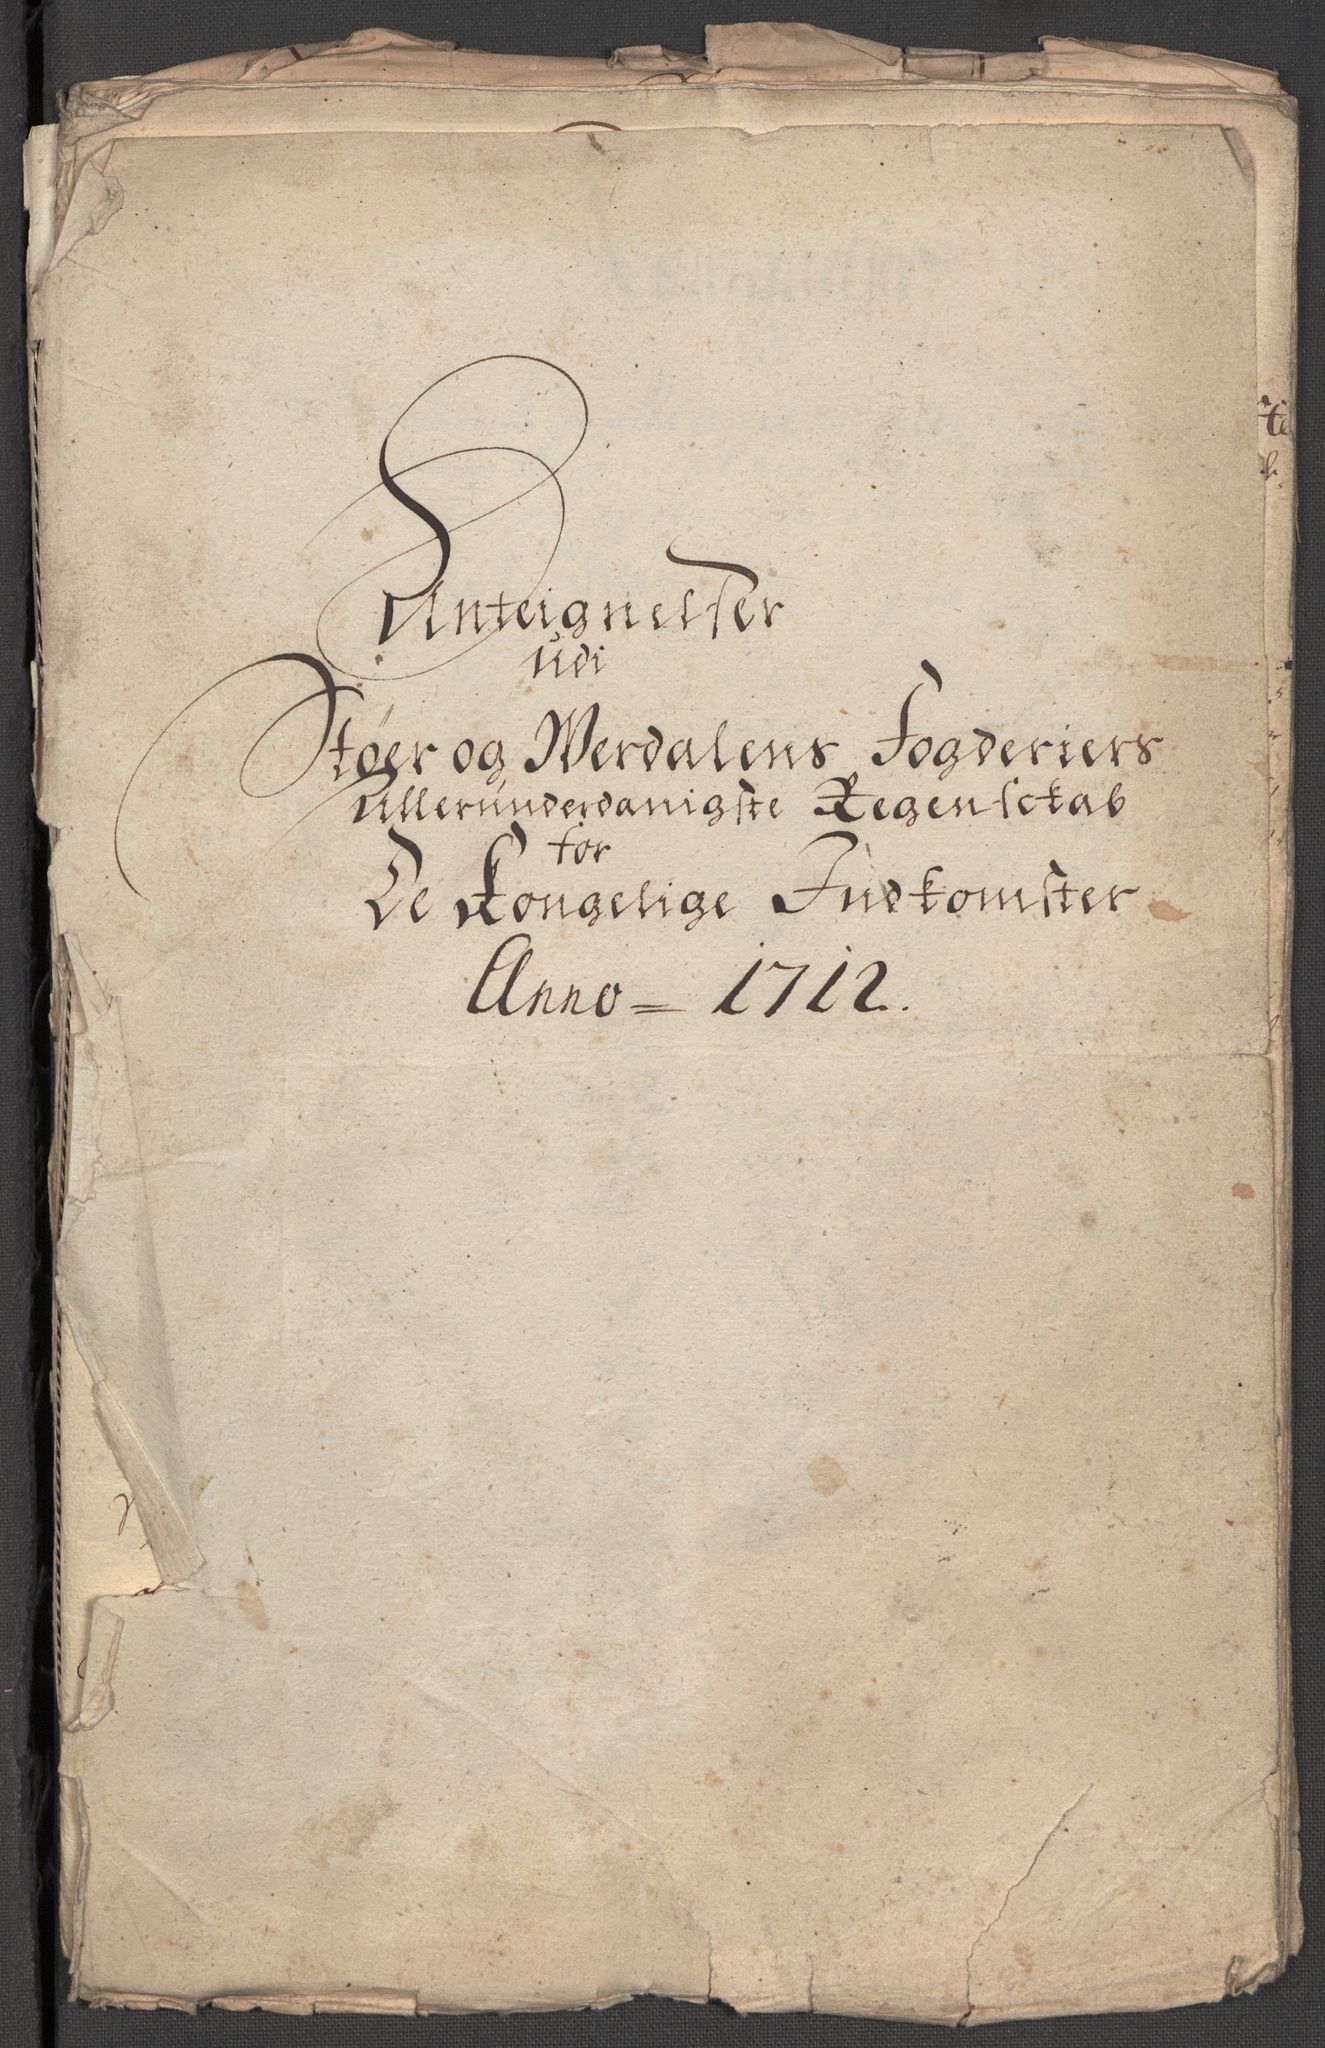 Anteignelser
udi
Støer og Werdalens Fogderiers
Allerunderdanigste Regenskab
for
De Kongelige Indkomster
Anno = 1712.